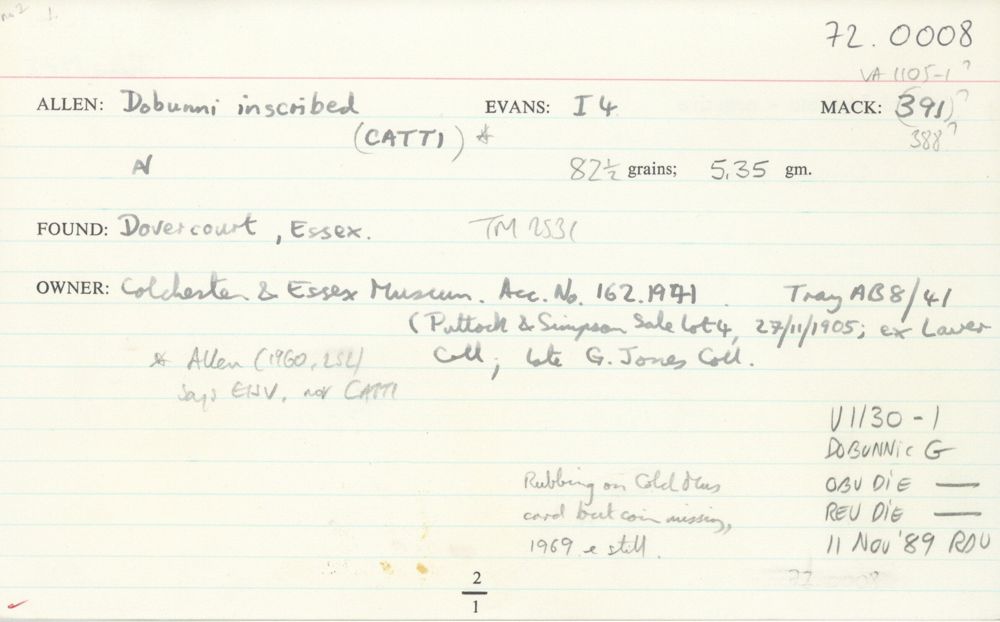 no 2 1.
72.0008
VA 1105-1?
ALLEN: Dobunni inscribed EVANS: I 4 MACK: (391)?
(CATTI) * 388?
N 82½ grains; 5.35 gm.
FOUND: Dovercourt, Essex. TM 2531
OWNER: Colchester & Essex Museum. Acc. No. 162.1941 Tray AB8/41
(Puttock & Simpson Sale Lot 4, 27/11/1905; ex Laver
* Allen (1960, 252) Coll; late G. Jones Coll.
says EISV, not CATTI
V1130-1
DOBUNNIC G
Rubbing on Cold Mus OBV DIE —
card but coin missing, REV DIE —
1969 & still. 11 Nov '89 RDV
72 0008
2
1